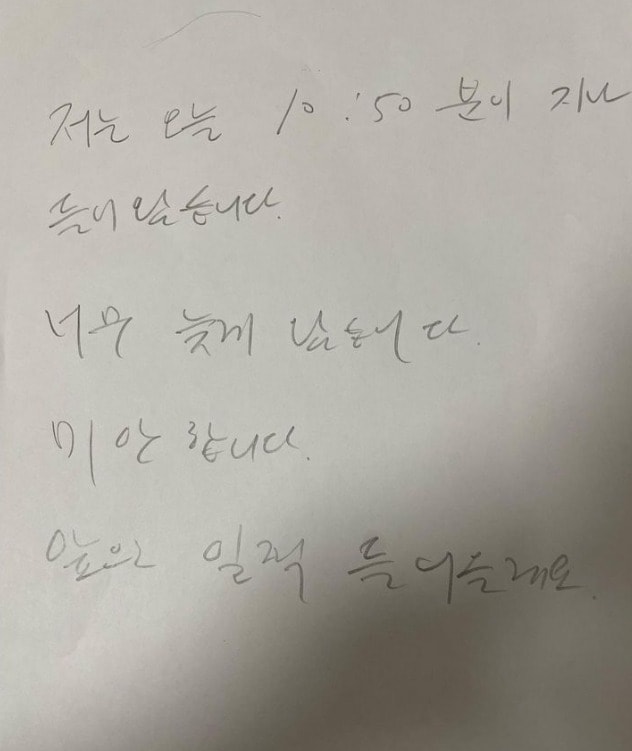 저는 오늘 10:50 분이 지나
들어 왔습니다.
너무 늦게 왔습니다.
미안 합니다.
앞으로 일찍 들어올래요.